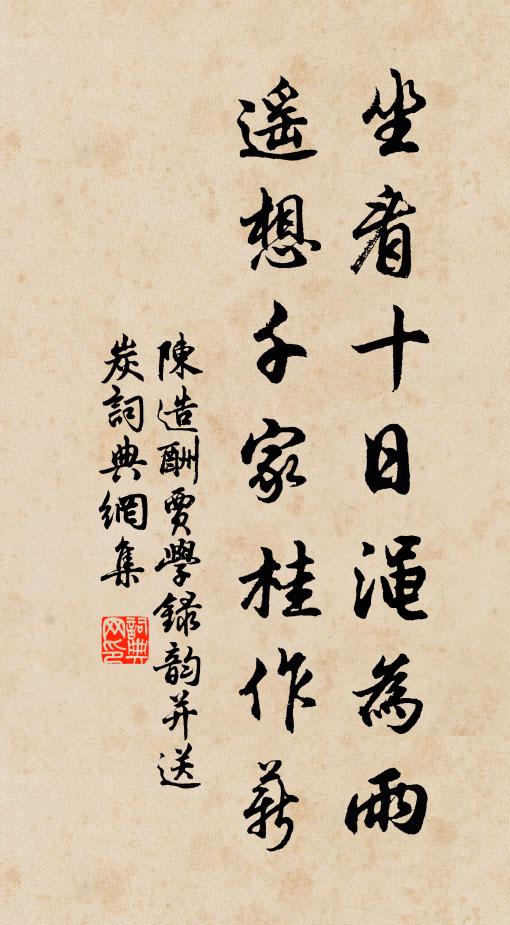 坐看十日渑為雨
遥想千家桂作薪
陳造酬賈學録韵并送
炭詞典網集
詞典
网印